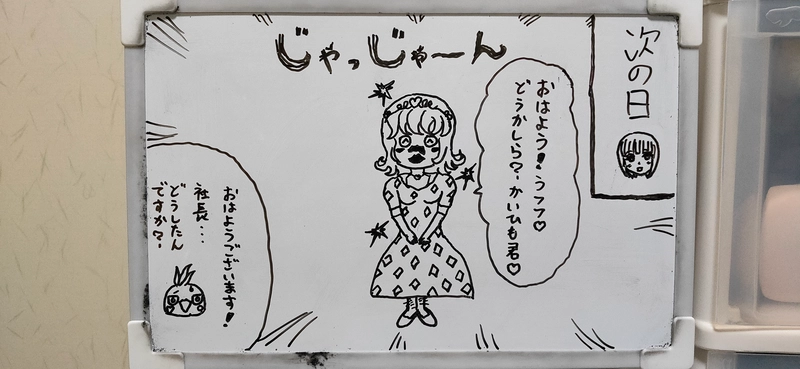 次の日
じゃっじゃーん
おはよう！うフフ♡
どうかしら？かいひも君♡
おはようございます！
社長・・・
どうしたん
ですか？